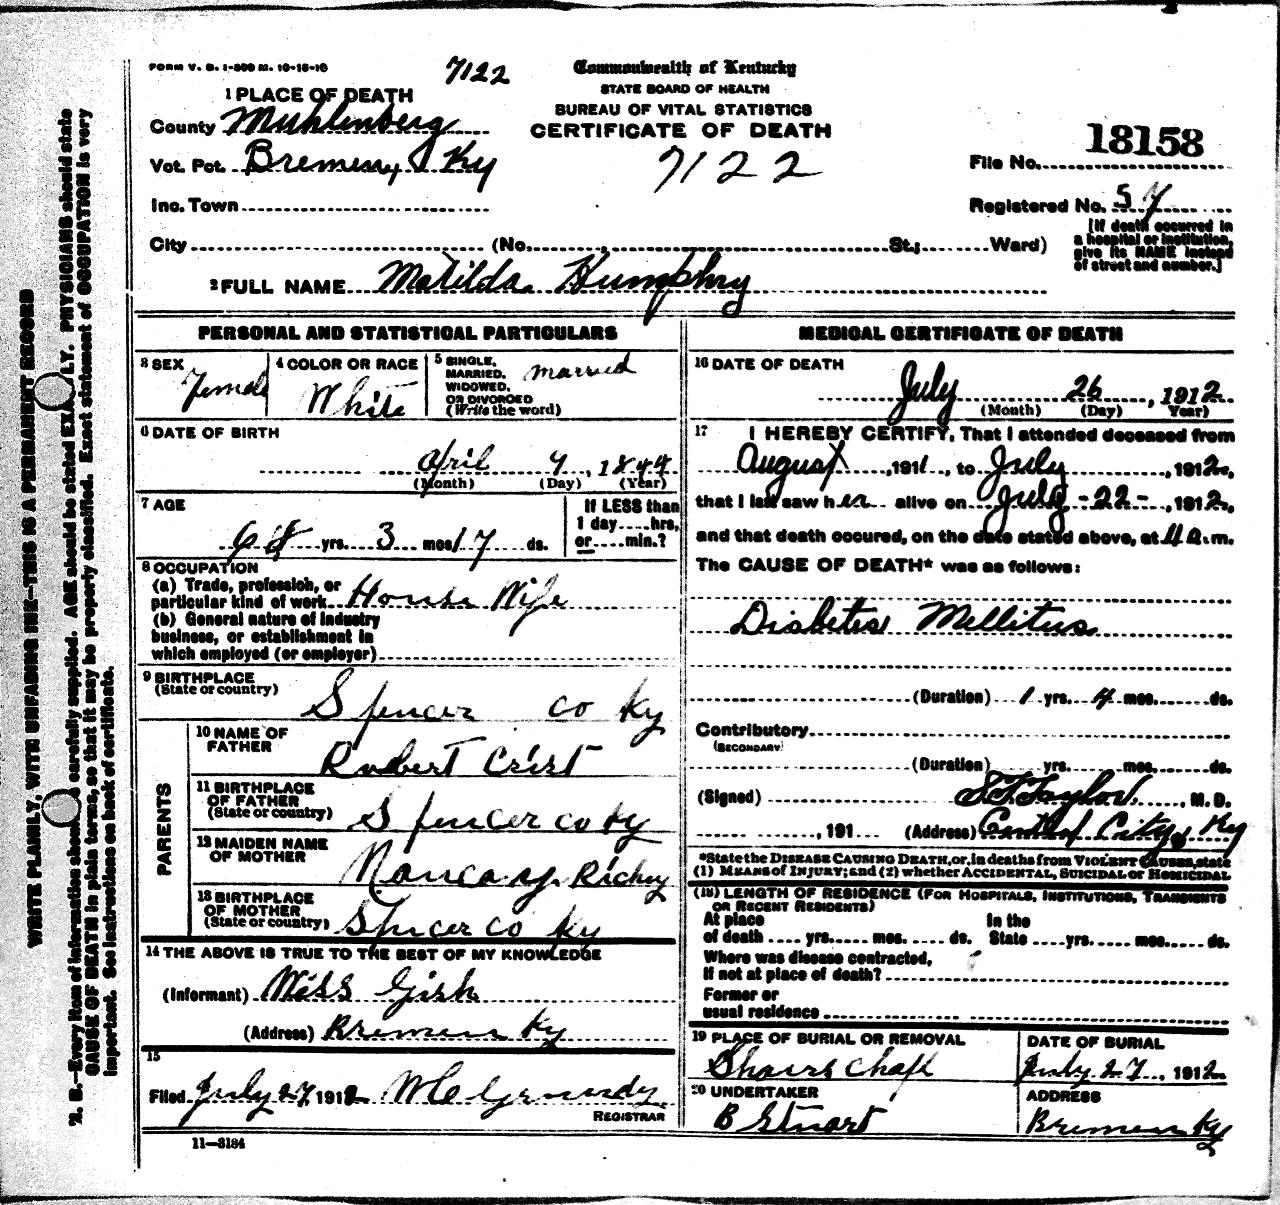 FORM V. S. 1-500 M. 10-18-10
7122
Commonwealth of Kentucky
STATE BOARD OF HEALTH
BUREAU OF VITAL STATISTICS
CERTIFICATE OF DEATH
7122
1 PLACE OF DEATH
County Muhlenberg
Vot. Pct. Bremen, Ky
Inc. Town
City (No. , St.; Ward)
18158
File No.
Registered No. 57
[If death occurred in
a hospital or institution,
give its NAME instead
of street and number.]
2 FULL NAME Matilda Humphry
PERSONAL AND STATISTICAL PARTICULARS
3 SEX Female
4 COLOR OR RACE White
5 SINGLE,
MARRIED,
WIDOWED,
OR DIVORCED
(Write the word) married
6 DATE OF BIRTH
April 9, 1844
(Month) (Day) (Year)
7 AGE
68 yrs. 3 mos 17 ds.
If LESS than
1 day....hrs,
or....min.?
8 OCCUPATION
(a) Trade, profession, or
particular kind of work House Wife
(b) General nature of industry
business, or establishment in
which employed (or employer)
9 BIRTHPLACE
(State or country) Spencer co Ky
PARENTS
10 NAME OF
FATHER Robert Crist
11 BIRTHPLACE
OF FATHER
(State or country) Spencer co Ky
12 MAIDEN NAME
OF MOTHER Richey
13 BIRTHPLACE
OF MOTHER
(State or country) Spicer co Ky
14 THE ABOVE IS TRUE TO THE BEST OF MY KNOWLEDGE
(Informant) Miss Gish
(Address) Bremen Ky
15
Filed July 27 1912 W C Grundy
REGISTRAR
11-3184
MEDICAL CERTIFICATE OF DEATH
16 DATE OF DEATH
July 26, 1912
(Month) (Day) (Year)
17 I HEREBY CERTIFY, That I attended deceased from
August, 1911, to July, 1912,
that I last saw her alive on July -22-, 1912,
and that death occured, on the date stated above, at 4 a.m.
The CAUSE OF DEATH* was as follows:
Diabetes Mellitus
(Duration) 1 yrs. 4 mos. ds.
Contributory
(SECONDARY)
(Duration) yrs. mos. ds.
(Signed) S.F. Taylor, M. D.
, 191 (Address) Central City, Ky
*State the DISEASE CAUSING DEATH, or, in deaths from VIOLENT CAUSES, state
(1) MEANS OF INJURY; and (2) whether ACCIDENTAL, SUICIDAL or HOMICIDAL
(18) LENGTH OF RESIDENCE (FOR HOSPITALS, INSTITUTIONS, TRANSIENTS
OR RECENT RESIDENTS)
At place In the
of death .... yrs..... mos..... ds. State ....yrs.....mos.....ds.
Where was disease contracted,
If not at place of death?
Former or
usual residence
19 PLACE OF BURIAL OR REMOVAL
DATE OF BURIAL
July 27, 1912
20 UNDERTAKER
B Stuart
ADDRESS
Bremen Ky
WRITE PLAINLY, WITH UNFADING INK—THIS IS A PERMANENT RECORD
carefully supplied. AGE should be stated EXACTLY. PHYSICIANS should state
CAUSE OF DEATH in plain terms, so that it may be properly classified. Exact statement of OCCUPATION is very
important. See instructions on back of certificate.